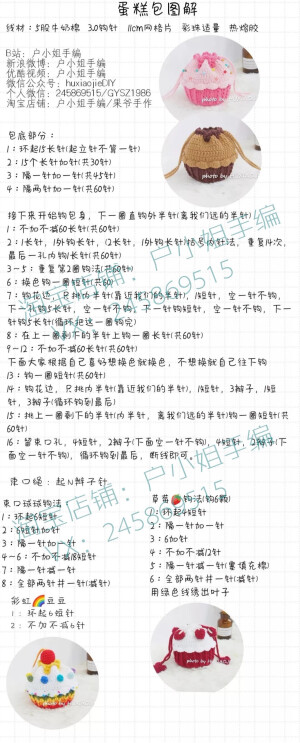 蛋糕包图解
线材：5股牛奶棉 3.0钩针 11cm网格片 彩珠适量 热熔胶
B站：户小姐手编
新浪微博：户小姐手编
优酷视频：户小姐手编
微信公众号：huxiaojieDIY
个人微信：245869515/GYSZ1986
淘宝店铺：户小姐手编/果爷手作
包底部分：
1：环起15长针(起立针不算一针)
2：15个长针加针(共30针)
3：隔一针加一针(共45针)
4：隔两针加一针(共60针)
接下来开始钩包身，下一圈直钩外半针(离我们远的半针)
1：不加不减60长针(共60针)
2：1长针，1外钩长针，(2长针，1外钩长针)括号内针法，重复14次，
最后一孔内钩1长针(共60针)
3-5：重复第2圈钩法(共60针)
6：换色钩一圈短针(共60针)
7：钩花边，只挑内半针(靠近我们的半针)，1短针，空一针不钩，
下一针钩5长针，空一针不钩，下一针钩短针，空一针不钩，下一
针钩5长针(循环起这一圈钩完)
8：在上一圈剩下的半针上钩一圈长针(共60针)
9-12：不加不减60长针(共60针)
下面大家根据自己喜好想换色就换色，不想换就自己往下钩
13：钩一圈短针(共60针)
14：钩花边，只挑内半针(靠近我们的半针)，1短针，3辫子，1短
针，3辫子(循环钩到最后)
15：挑上一圈剩下的半针(内半针，离我们远的半针)钩一圈短针(共
60针)
16：留束口孔，4短针，2辫子(下面空一针不钩)，4短针，2辫子(下
面空一针不钩)，循环钩到最后，断线即可。
束口绳：起N辫子针
束口球球钩法
1：环起6短针
2：6短针加针
3：隔一针加一针
4-6：不加不减18短针
7：隔一针减一针
8：全部两针并一针(减针)
草莓🍓钩法(钩6颗)
1：环起4短针
2：隔一针加一针
3：6加针
4：不加不减12针
5：隔一针减一针(塞填充棉)
6：全部两针并一针(减针)
用绿色线绣出叶子
彩虹🌈豆豆
1：环起6短针
2：不加不减6针
淘宝店铺：户小姐手编
245869515
淘宝店铺：户小姐手编
245869515